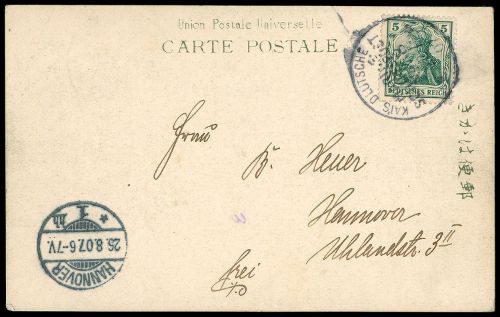 Union Postale Universelle
CARTE POSTALE
5
DEUTSCHES REICH
KAIS. DEUTSCHE
きかは便郵
Frau
B. Heuer
Hannover
Uhlandstr. 3 II
frei
HANNOVER
* 1 m
26.8.07.6-7V.